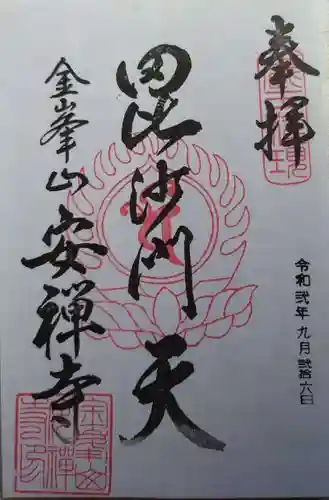 奉拝
令和弐年九月弐拾六日
毘沙門天
金峯山安禅寺